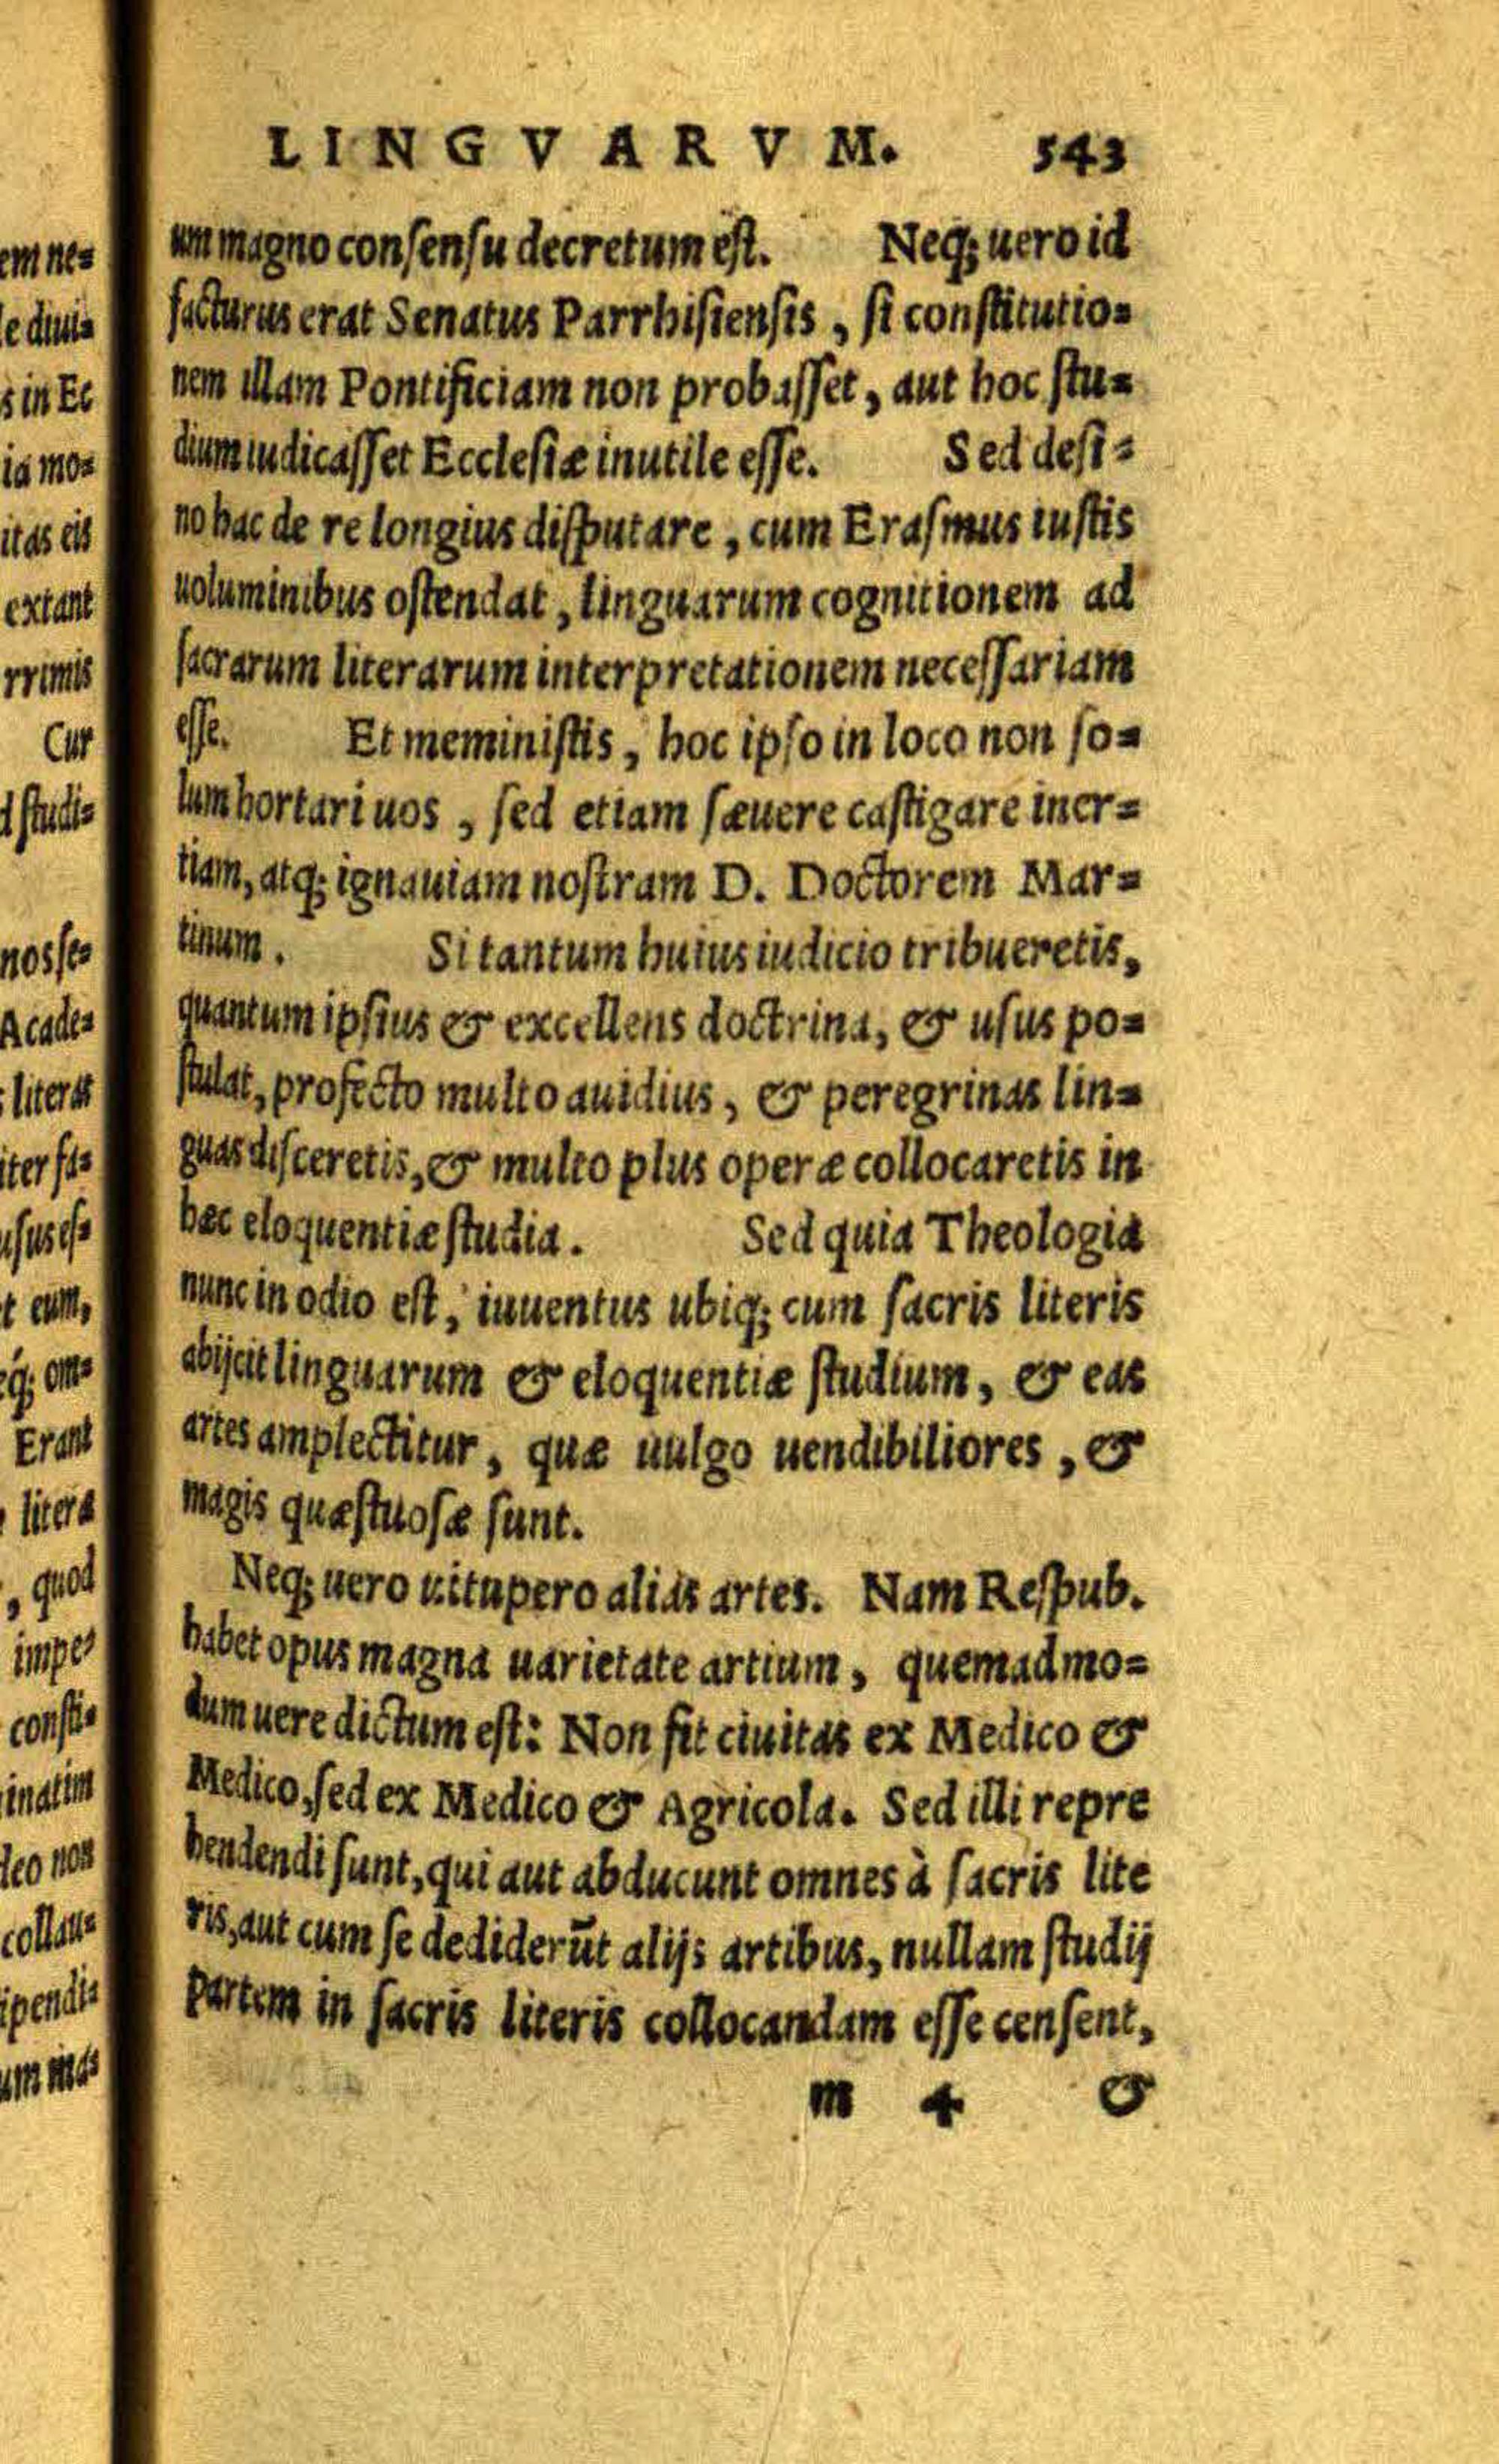 LINGVARVM. 543
um magno consensu decretum est. Neq; uero id
facturus erat Senatus Parrhisiensis, si constitutio=
nem illam Pontificiam non probasset, aut hoc stu=
dium iudicasset Ecclesiæ inutile esse. Sed desi=
no hac de re longius disputare, cum Erasmus iustis
uoluminibus ostendat, linguarum cognitionem ad
sacrarum literarum interpretationem necessariam
esse. Et meministis, hoc ipso in loco non so=
lum hortari uos, sed etiam sæuere castigare iner=
tiam, atq; ignauiam nostram D. Doctorem Mar=
tinum. Si tantum huius iudicio tribueretis,
quantum ipsius & excellens doctrina, & usus po=
stulat, profecto multo auidius, & peregrinas lin=
guas disceretis, & multo plus operæ collocaretis in
hæc eloquentiæ studia. Sed quia Theologia
nunc in odio est, iuuentus ubiq; cum sacris literis
abijcit linguarum & eloquentiæ studium, & eas
artes amplectitur, quæ uulgo uendibiliores, &
magis quæstuosæ sunt.
Neq; uero uitupero alias artes. Nam Respub.
habet opus magna uarietate artium, quemadmo=
dum uere dictum est: Non fit ciuitas ex Medico &
Medico, sed ex Medico & Agricola. Sed illi repre
hendendi sunt, qui aut abducunt omnes à sacris lite
ris, aut cum se dediderūt alijs artibus, nullam studij
partem in sacris literis collocandam esse censent,
m 4 &
em ne=
le diui=
s in Ec
ia mo=
itas eis
extant
rrimis
Cur
d studi=
nos se=
Acade=
literas
iter fa=
usus es=
t eum,
éq; om=
Erant
literæ
, quod
impe=
consti=
inatim
leo non
collau=
ipendi=
um ma=